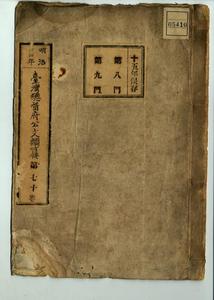 05410
十五年保存
第八門
第九門
明治
年
臺灣總督府公文類纂
第七十